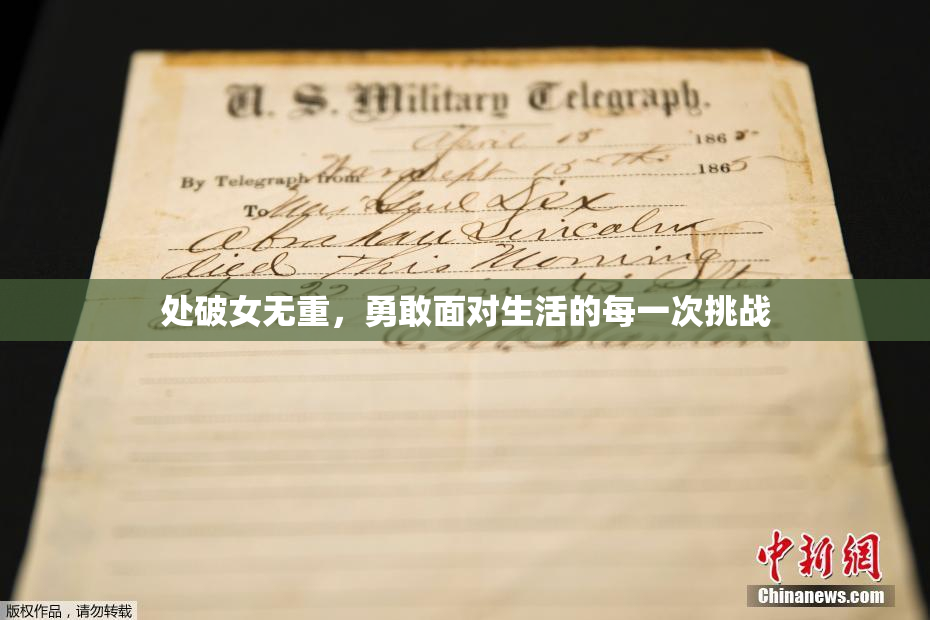 U. S. Military Telegraph.
April 15 1865
By Telegraph from War Dept 15th 1865
To Maj Genl Dix
Abraham Lincoln
died This Morning
at 22 minutes after
处破女无重，勇敢面对生活的每一次挑战
E. M. Stanton
中新网
Chinanews.com
版权作品，请勿转载